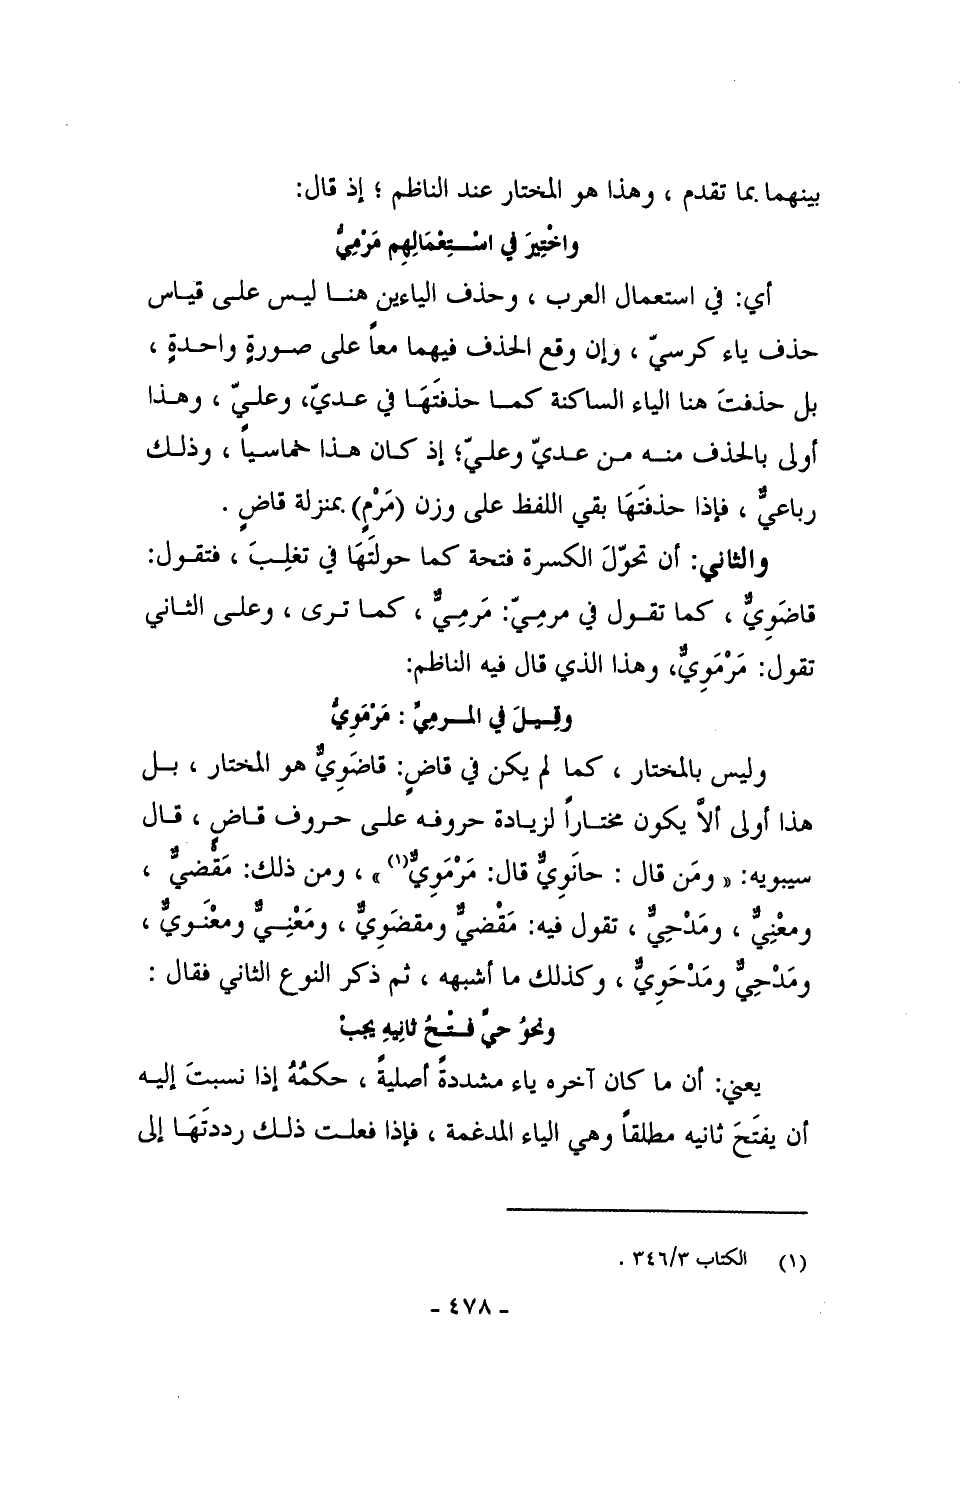 بينهما بما تقدم ، وهذا هو المختار عند الناظم ؛ إذ قال:
واخْتِيرَ في اسْتِعْمَالِهِم مَرْمِيُّ
أي: في استعمال العرب ، وحذف الياءين هنا ليس على قياس
حذف ياء كرسيّ ، وإن وقع الحذف فيهما معاً على صورةٍ واحدةٍ ،
بل حذفتَ هنا الياء الساكنة كما حذفتَهَا في عديّ، وعليّ ، وهذا
أولى بالحذف منه من عديّ وعليّ؛ إذ كان هذا خماسياً ، وذلك
رباعيٌّ ، فإذا حذفتَهَا بقي اللفظ على وزن (مَرْمٍ) بمنزلة قاضٍ .
والثاني: أن تحوّلَ الكسرة فتحة كما حولتَهَا في تغلِبَ ، فتقول:
قاضَوِيٌّ ، كما تقول في مرمِيّ: مَرمِيٌّ ، كما ترى ، وعلى الثاني
تقول: مَرْمَوِيٌّ، وهذا الذي قال فيه الناظم:
وقِيلَ في المرمِيِّ : مَرْمَوِيُّ
وليس بالمختار ، كما لم يكن في قاضٍ: قاضَوِيٌّ هو المختار ، بل
هذا أولى ألاَّ يكون مختاراً لزيادة حروفه على حروف قاضٍ ، قال
سيبويه: « ومَن قال : حانَوِيٌّ قال: مَرْمَوِيٌّ(١)» ، ومن ذلك: مَقْضيٌّ ،
ومعْنِيٌّ ، ومَدْحِيٌّ ، تقول فيه: مَقْضيٌّ ومقضَوِيٌّ ، ومَعْنِيٌّ ومعْنَويٌّ ،
ومَدْحِيٌّ ومَدْحَوِيٌّ ، وكذلك ما أشبهه ، ثم ذكر النوع الثاني فقال :
ونحوُ حيٍّ فَتْحُ ثانِيهِ يجبْ
يعني: أن ما كان آخره ياء مشددةً أصليةً ، حكمُهُ إذا نسبتَ إليه
أن يفتَحَ ثانيه مطلقاً وهي الياء المدغمة ، فإذا فعلت ذلك رددتَهَا إلى
(١) الكتاب ٣٤٦/٣ .
- ٤٧٨ -